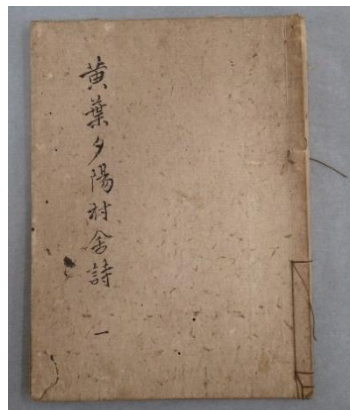 黄葉夕陽村舎詩 一